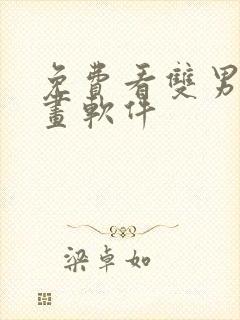 免費看雙男
畫軟件
梁卓如